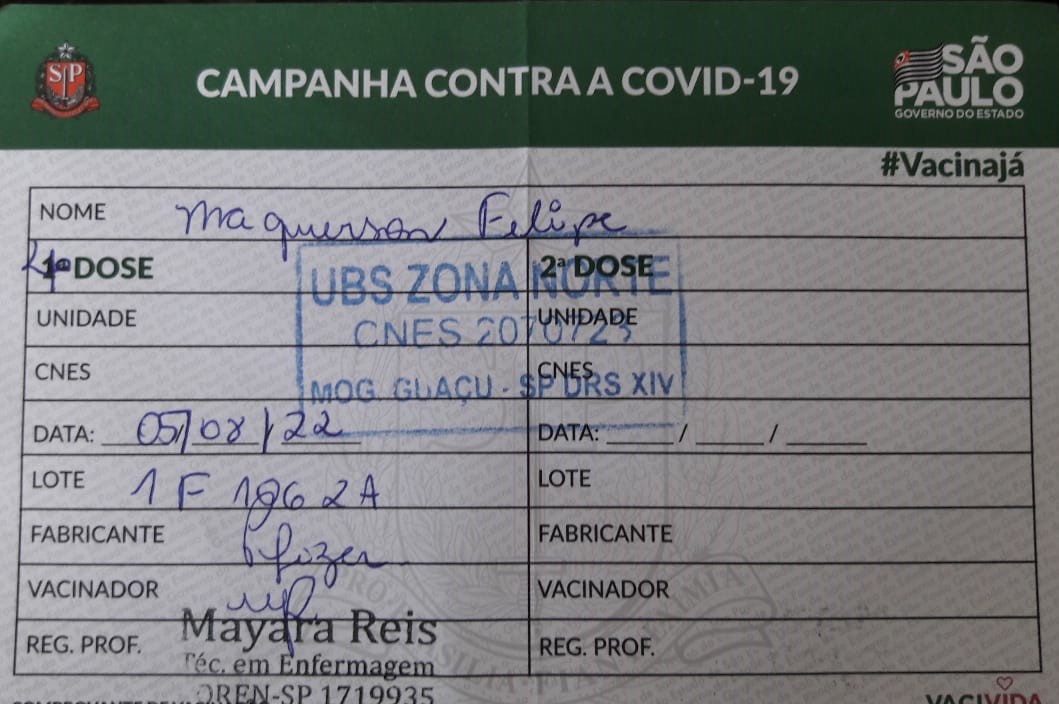 SP
CAMPANHA CONTRA A COVID-19
SÃO
PAULO
GOVERNO DO ESTADO
#Vacinajá
NOME Maquerson Felipe
1ª DOSE
2ª DOSE
UBS ZONA NORTE
CNES 2070723
MOG. GUAÇU - SP DRS XIV
UNIDADE
UNIDADE
CNES
CNES
DATA: 05/08/22
DATA: ____/____/____
LOTE 1F1962A
LOTE
FABRICANTE Pfizer
FABRICANTE
VACINADOR
VACINADOR
REG. PROF.
REG. PROF.
Mayara Reis
Téc. em Enfermagem
OREN-SP 1719935
VACIVIDA